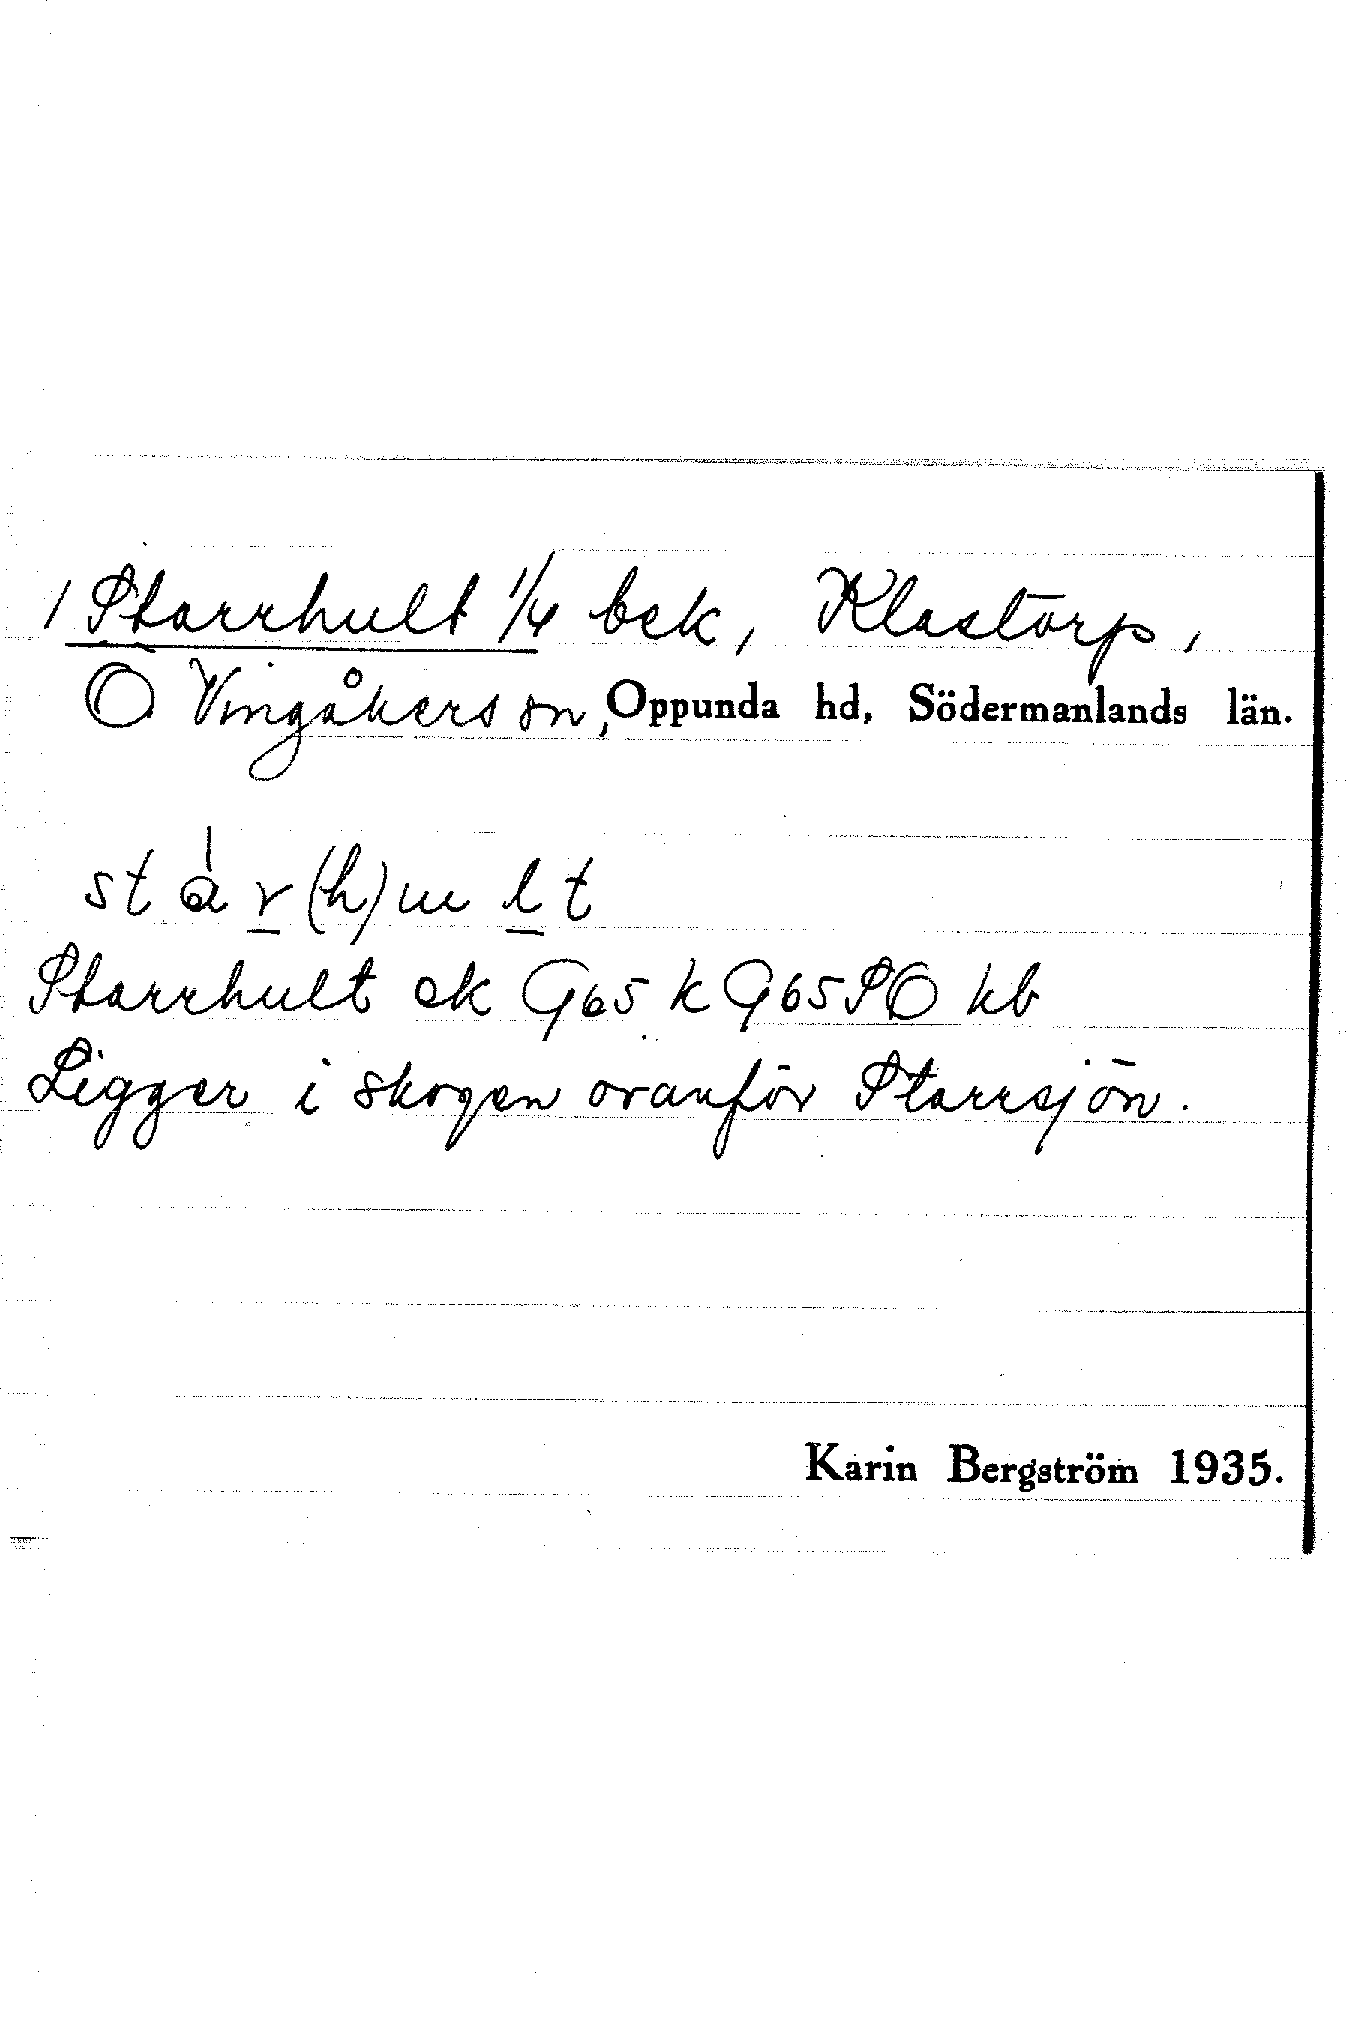 1 Starrhult 1/4 bek, Klastorp,
Ö Vingåkers sn, Oppunda hd, Södermanlands län.
stàr(h)ult
Starrhult ek G65 k G65SO kb
Ligger i skogen ovanför Starrsjön.
Karin Bergström 1935.